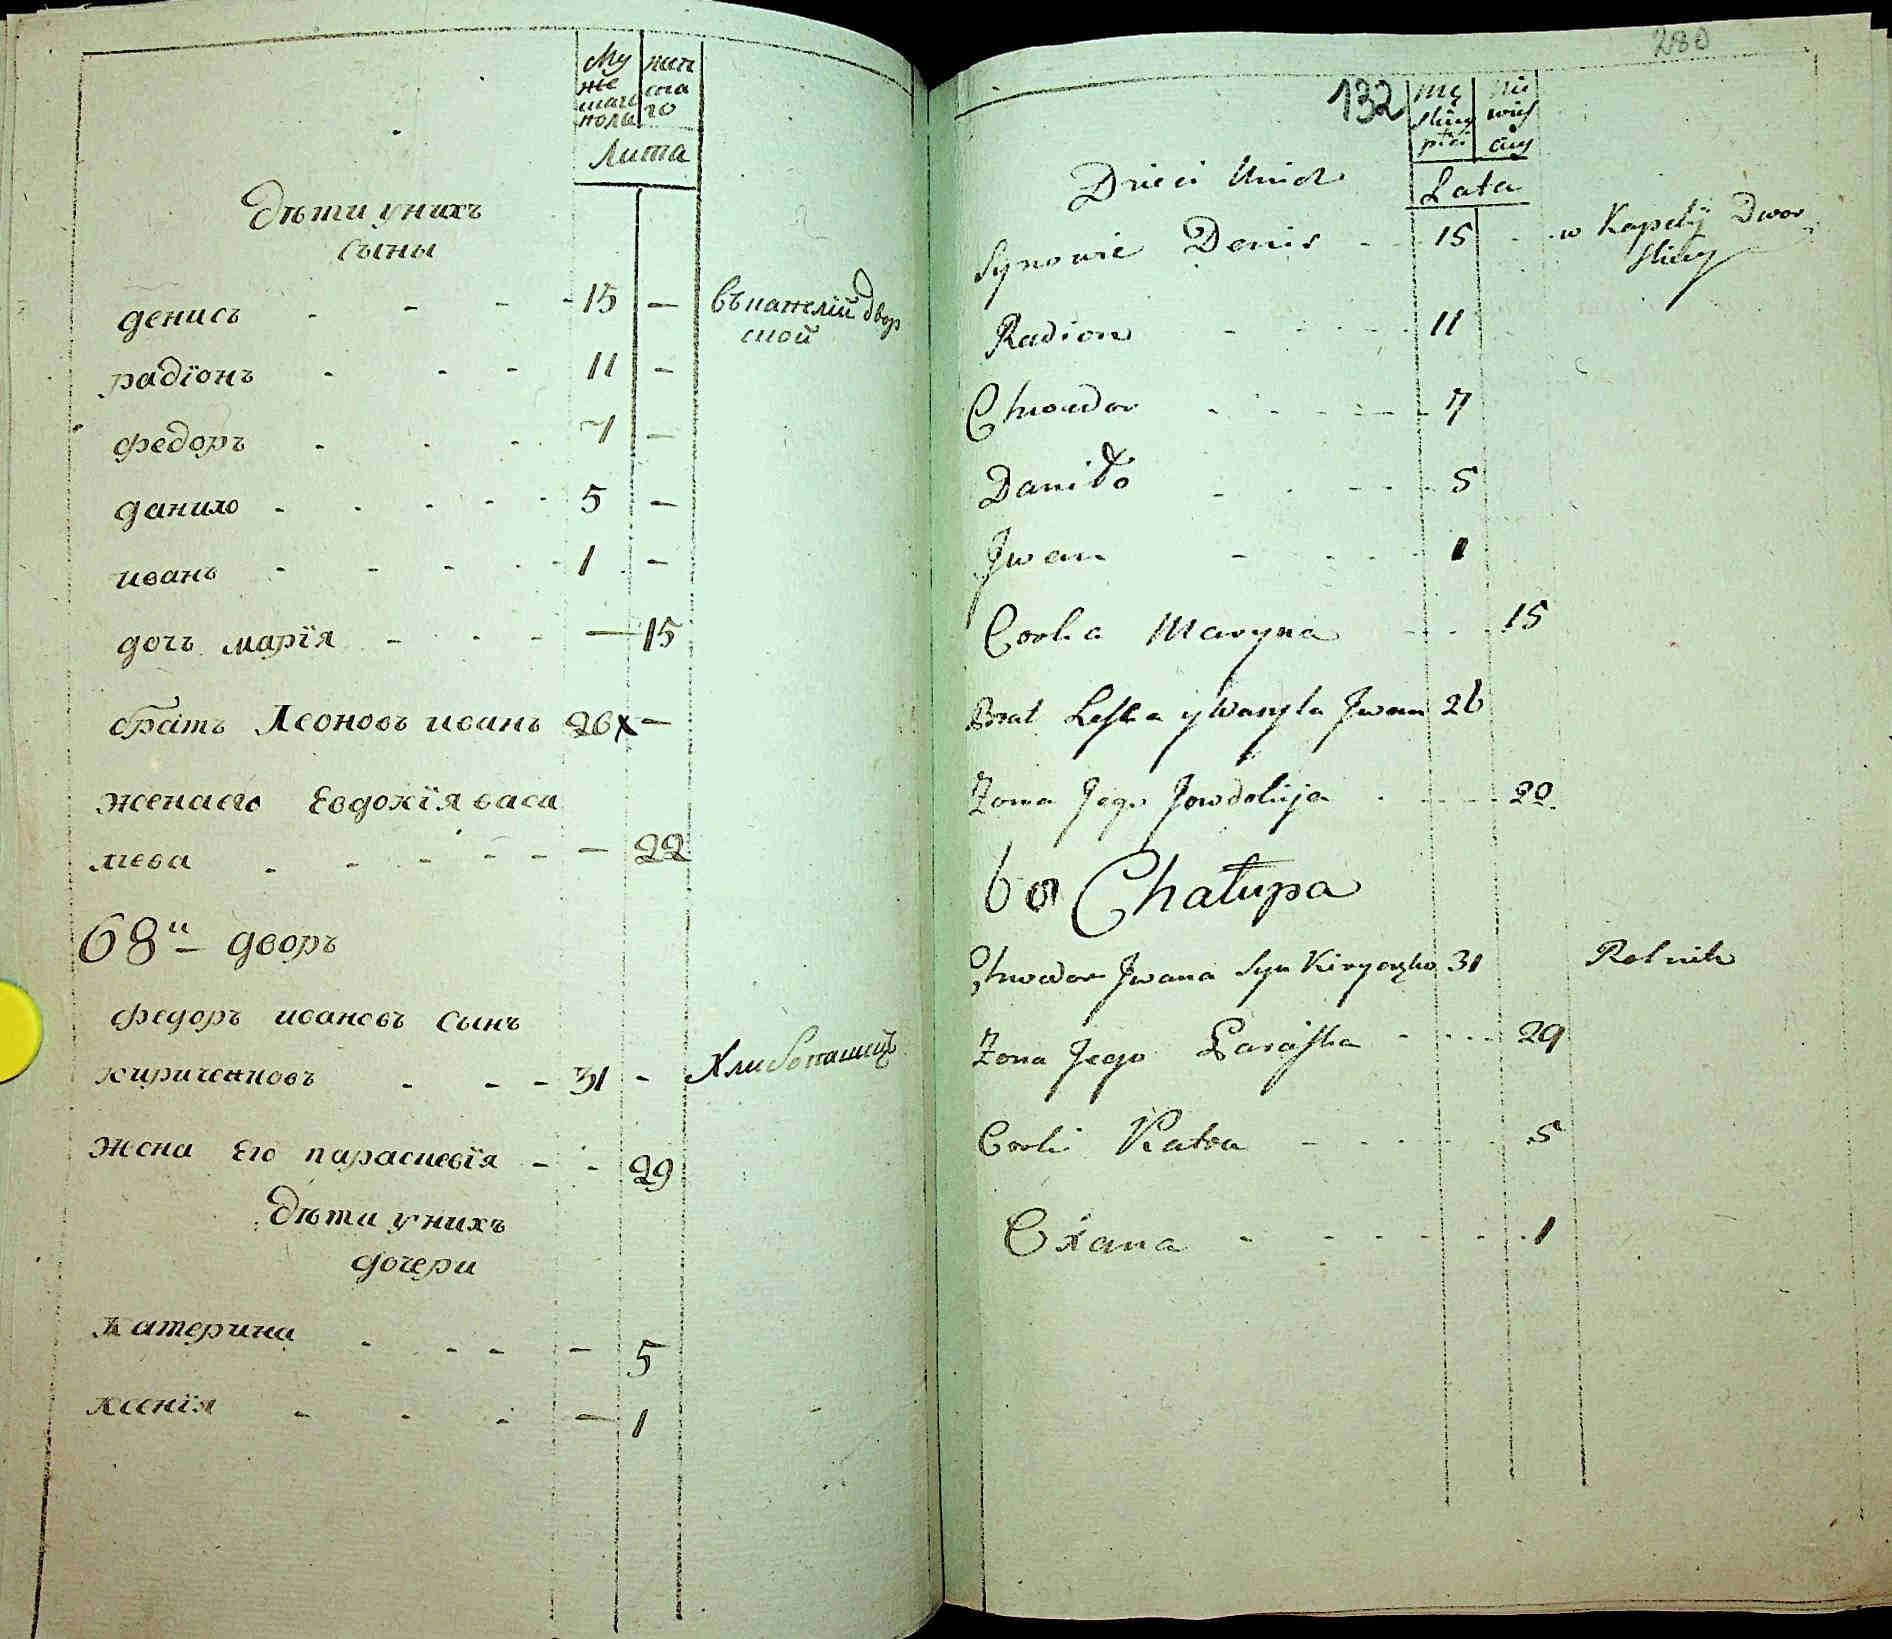 Му жен
же ска
шаго го
пола
Лита
Дѣти унихъ
сыны
денисъ - - - 15 — Въ капелiй двор
ской
радїонъ - - - 11 —
федоръ - - - 7 —
данило - - - - - 5 —
иванъ - - - - - 1 —
дочъ марїя - - - — 15
братъ Леоновъ иванъ 26 x —
жена его Евдокїя васи
лева - - - - - — 22
68й дворъ
федоръ ивановъ сынъ
кириченковъ - - - 31 - Хлибопашец
жена Его параскевїя - - 29
Дѣти унихъ
дочери
катерина - - - — 5
ксенїя - - - — 1
280
132
Mę Nie
skiey wieś
płci ciey
Lata
Dzieci Unich
Synowie Denis - - 15 - - w Kapelÿ Dwor
skiey
Radion - - - - - 11
Chwedor - - - - - 7
Daniło - - - - 5
Jwan - - - - 1
Corka Maryna - - - 15
Brat Leska y Wasyla Jwan 26
Żona Jego Jowdokija - - - - 20
68 Chałupa
Chwedor Jwana Syn Kiryczko 31 Rolnik
Żona Jego Paraska - - - - 29
Corki Katra - - - - - 5
Oxana - - - - - - 1